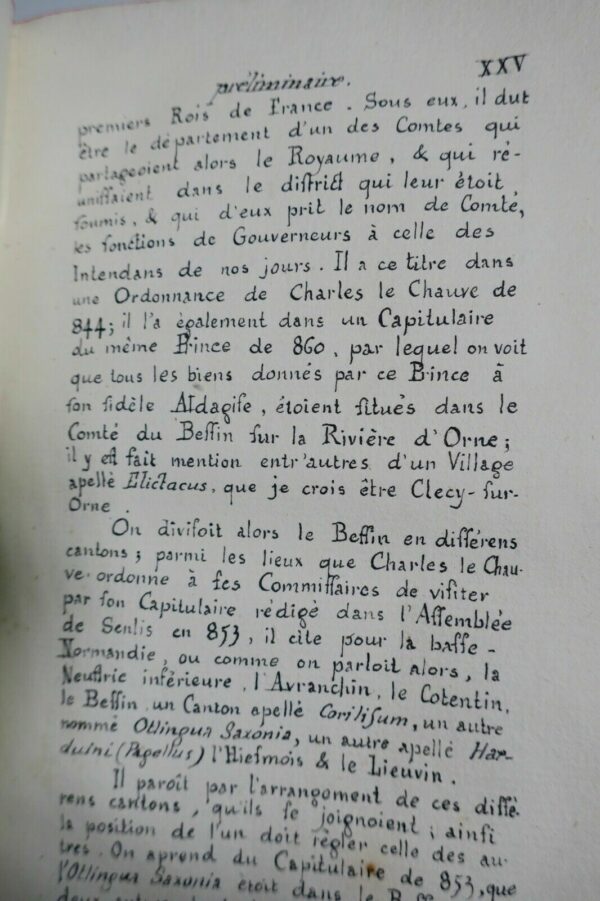 préliminaire.
XXV
premiers Rois de France. Sous eux, il dut
être le département d'un des Comtes qui
partageoient alors le Royaume, & qui ré-
unissaient dans le district qui leur étoit
soumis, & qui d'eux prit le nom de Comté,
les fonctions de Gouverneurs à celle des
Intendans de nos jours. Il a ce titre dans
une Ordonnance de Charles le Chauve de
844; il l'a également dans un Capitulaire
du même Prince de 860, par lequel on voit
que tous les biens donnés par ce Prince à
son fidèle Aldagise, étoient situés dans le
Comté du Bessin sur la Rivière d'Orne;
il y est fait mention entr'autres d'un Village
apellé Elictacus, que je crois être Clecy-sur-
Orne.
On divisoit alors le Bessin en différens
cantons; parmi les lieux que Charles le Chau-
ve ordonne à ses Commissaires de visiter
par son Capitulaire rédigé dans l'Assemblée
de Senlis en 853, il cite pour la basse-
Normandie, ou comme on parloit alors, la
Neustrie inférieure, l'Avranchin, le Cotentin,
le Bessin, un Canton apellé Corilisum, un autre
nommé Otlingua Saxonia, un autre apellé Har-
duini (Pagellus) l'Hiesmois & le Lieuvin.
Il paroît par l'arrangement de ces diffé-
rens cantons, qu'ils se joignoient; ainsi
la position de l'un doit règler celle des au-
tres. On aprend du Capitulaire de 853, que
l'Otlingua Saxonia étoit dans le